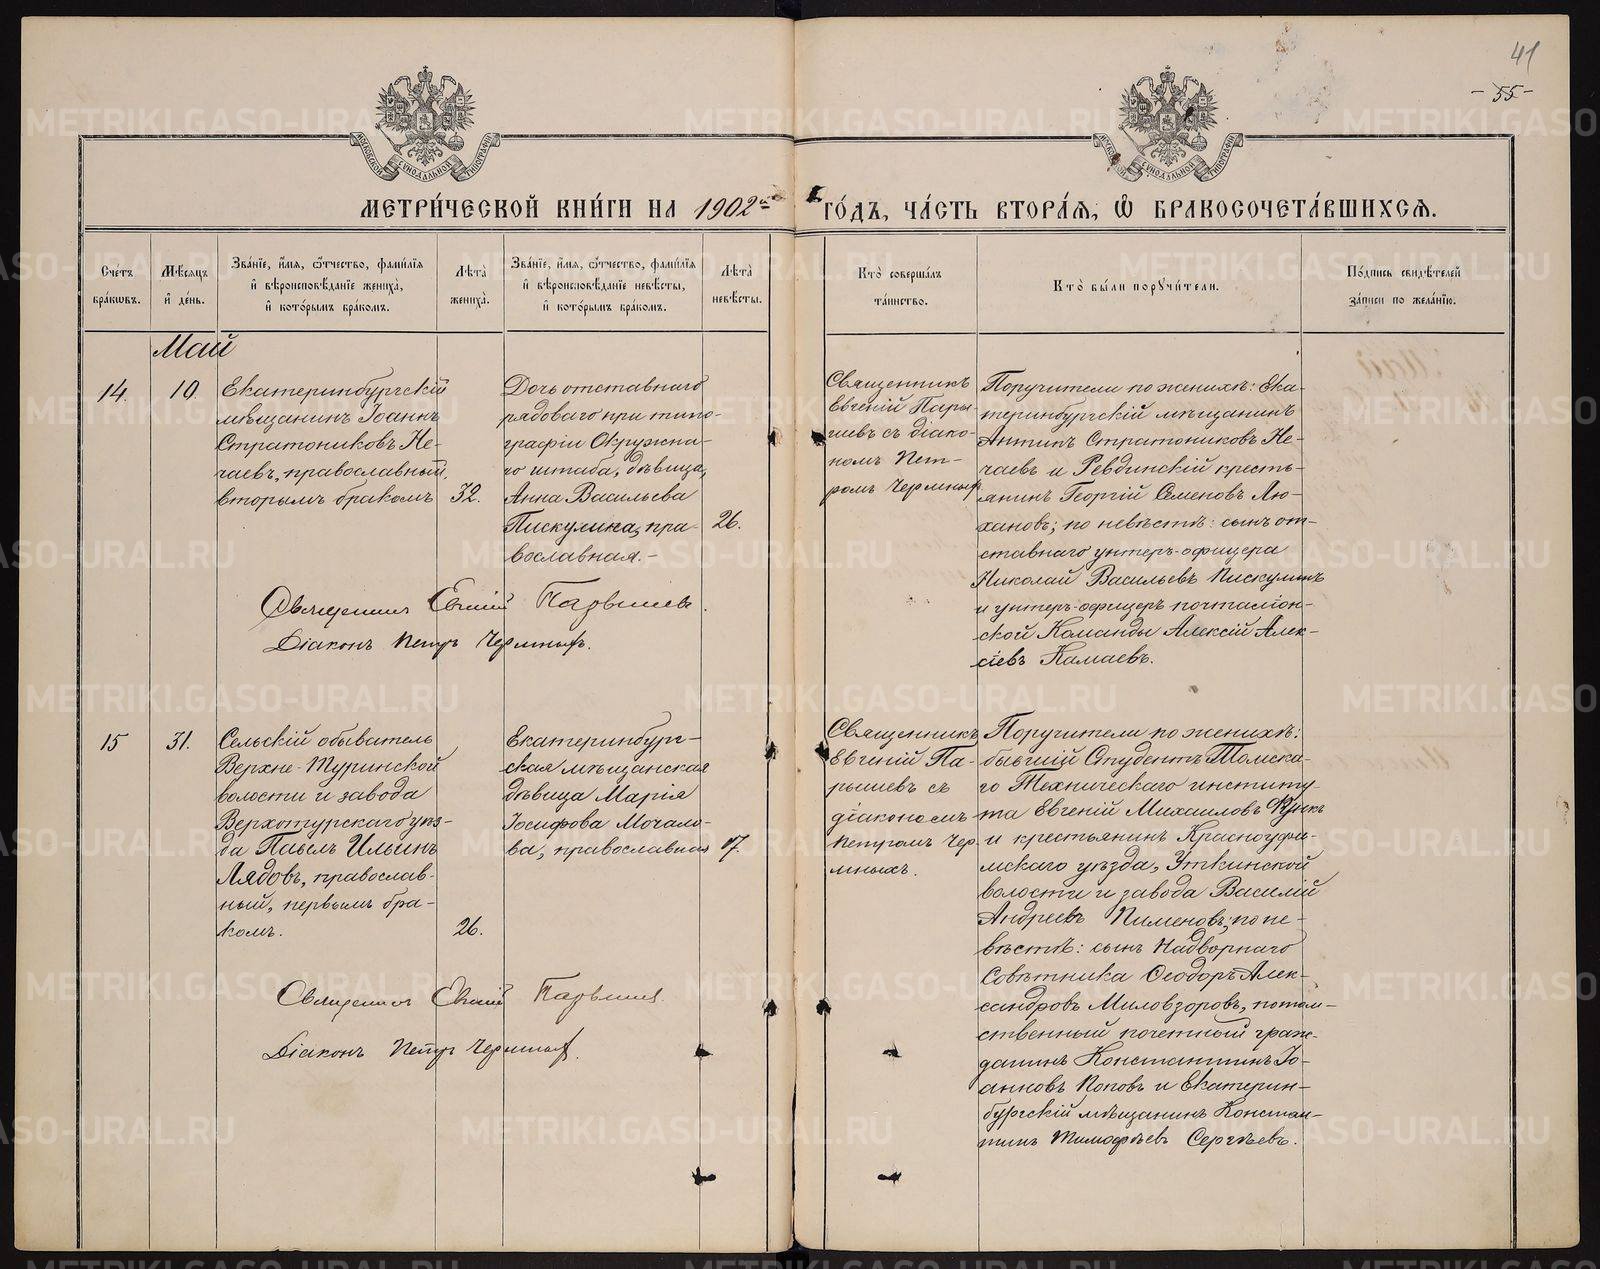 41
- 55 -
МЕТРИ́ЧЕСКОЙ КНИ́ГИ НА 1902й ГО́ДЪ, ЧА́СТЬ ВТОРА́Я, Ѽ БРАКОСОЧЕТА́ВШИХСЯ.
Сче́тъ бра́ковъ.
Мѣ́сяцъ и҆ де́нь.
Зва́нїе, и҆́мя, ѻ҆́тчество, фами́лїя
и҆ вѣроисповѣ́данїе жениха̀,
и҆ кото́рымъ бра́комъ.
Лѣ́та жениха̀.
Зва́нїе, и҆́мя, ѻ҆́тчество, фами́лїя
и҆ вѣроисповѣ́данїе невѣ́сты,
и҆ кото́рымъ бра́комъ.
Лѣ́та невѣ́сты.
Кто̀ соверша́лъ
та́инство.
Кто̀ бы́ли порꙋчи́тели.
По́дпись свидѣ́телей
за́писи по жела́нїю.
Май
14.
10.
Екатеринбургскій
мѣщанинъ Іоаннъ
Стратониковъ Не-
чаевъ, православный,
вторымъ бракомъ
32.
Дочь отставнаго
рядоваго при типо-
графіи Окружна-
го штаба, дѣвица,
Анна Васильева
Пискулина, пра-
вославная.-
26.
Священникъ
Евгеній Пары-
шевъ съ діако-
номъ Пет-
ромъ Чермных
Поручители по женихѣ: Ека-
теринбургскій мѣщанинъ
Антинъ Стратониковъ Не-
чаевъ и Ревдинскій кресть-
янинъ Георгій Семеновъ Лю-
хановъ; по невѣстѣ: сынъ от-
ставнаго унтеръ-офицера
Николай Васильевъ Пискулинъ
и унтеръ-офицеръ почталіон-
ской Команды Алексій Алек-
сіевъ Камаевъ.
Священникъ Евгеній Парышевъ.
Діаконъ Петръ Чермныхъ.
15
31.
Сельскій обыватель
Верхне-Туринской
волости и завода
Верхотурскаго уѣз-
да Павелъ Ильинъ
Лядовъ, православ-
ный, первымъ бра-
комъ.
26.
Екатеринбург-
ская мѣщанская
дѣвица Марія
Іосифова Мочало-
ва, православная
17.
Священникъ
Евгеній Па-
рышевъ съ
діакономъ
Петромъ Чер-
мныхъ.
Поручители по женихѣ:
бывшій Студентъ Томска-
го Техническаго институ-
та Евгеній Михаиловъ Функъ
и крестьянинъ Красноуфи-
мскаго уѣзда, Уткинской
волости и завода Василій
Андреевъ Пименовъ; по не-
вѣстѣ: сынъ Надворнаго
Совѣтника Ѳеодоръ Алек-
сандровъ Миловзоровъ, потом-
ственный почетный граж-
данинъ Константинъ Іо-
анновъ Поповъ и Екатерин-
бургскій мѣщанинъ Констан-
тинъ Тимофѣевъ Сергѣевъ.
Священникъ Евгеній Парышевъ.
Діаконъ Петръ Чермныхъ.
METRIKI.GASO-URAL.RU